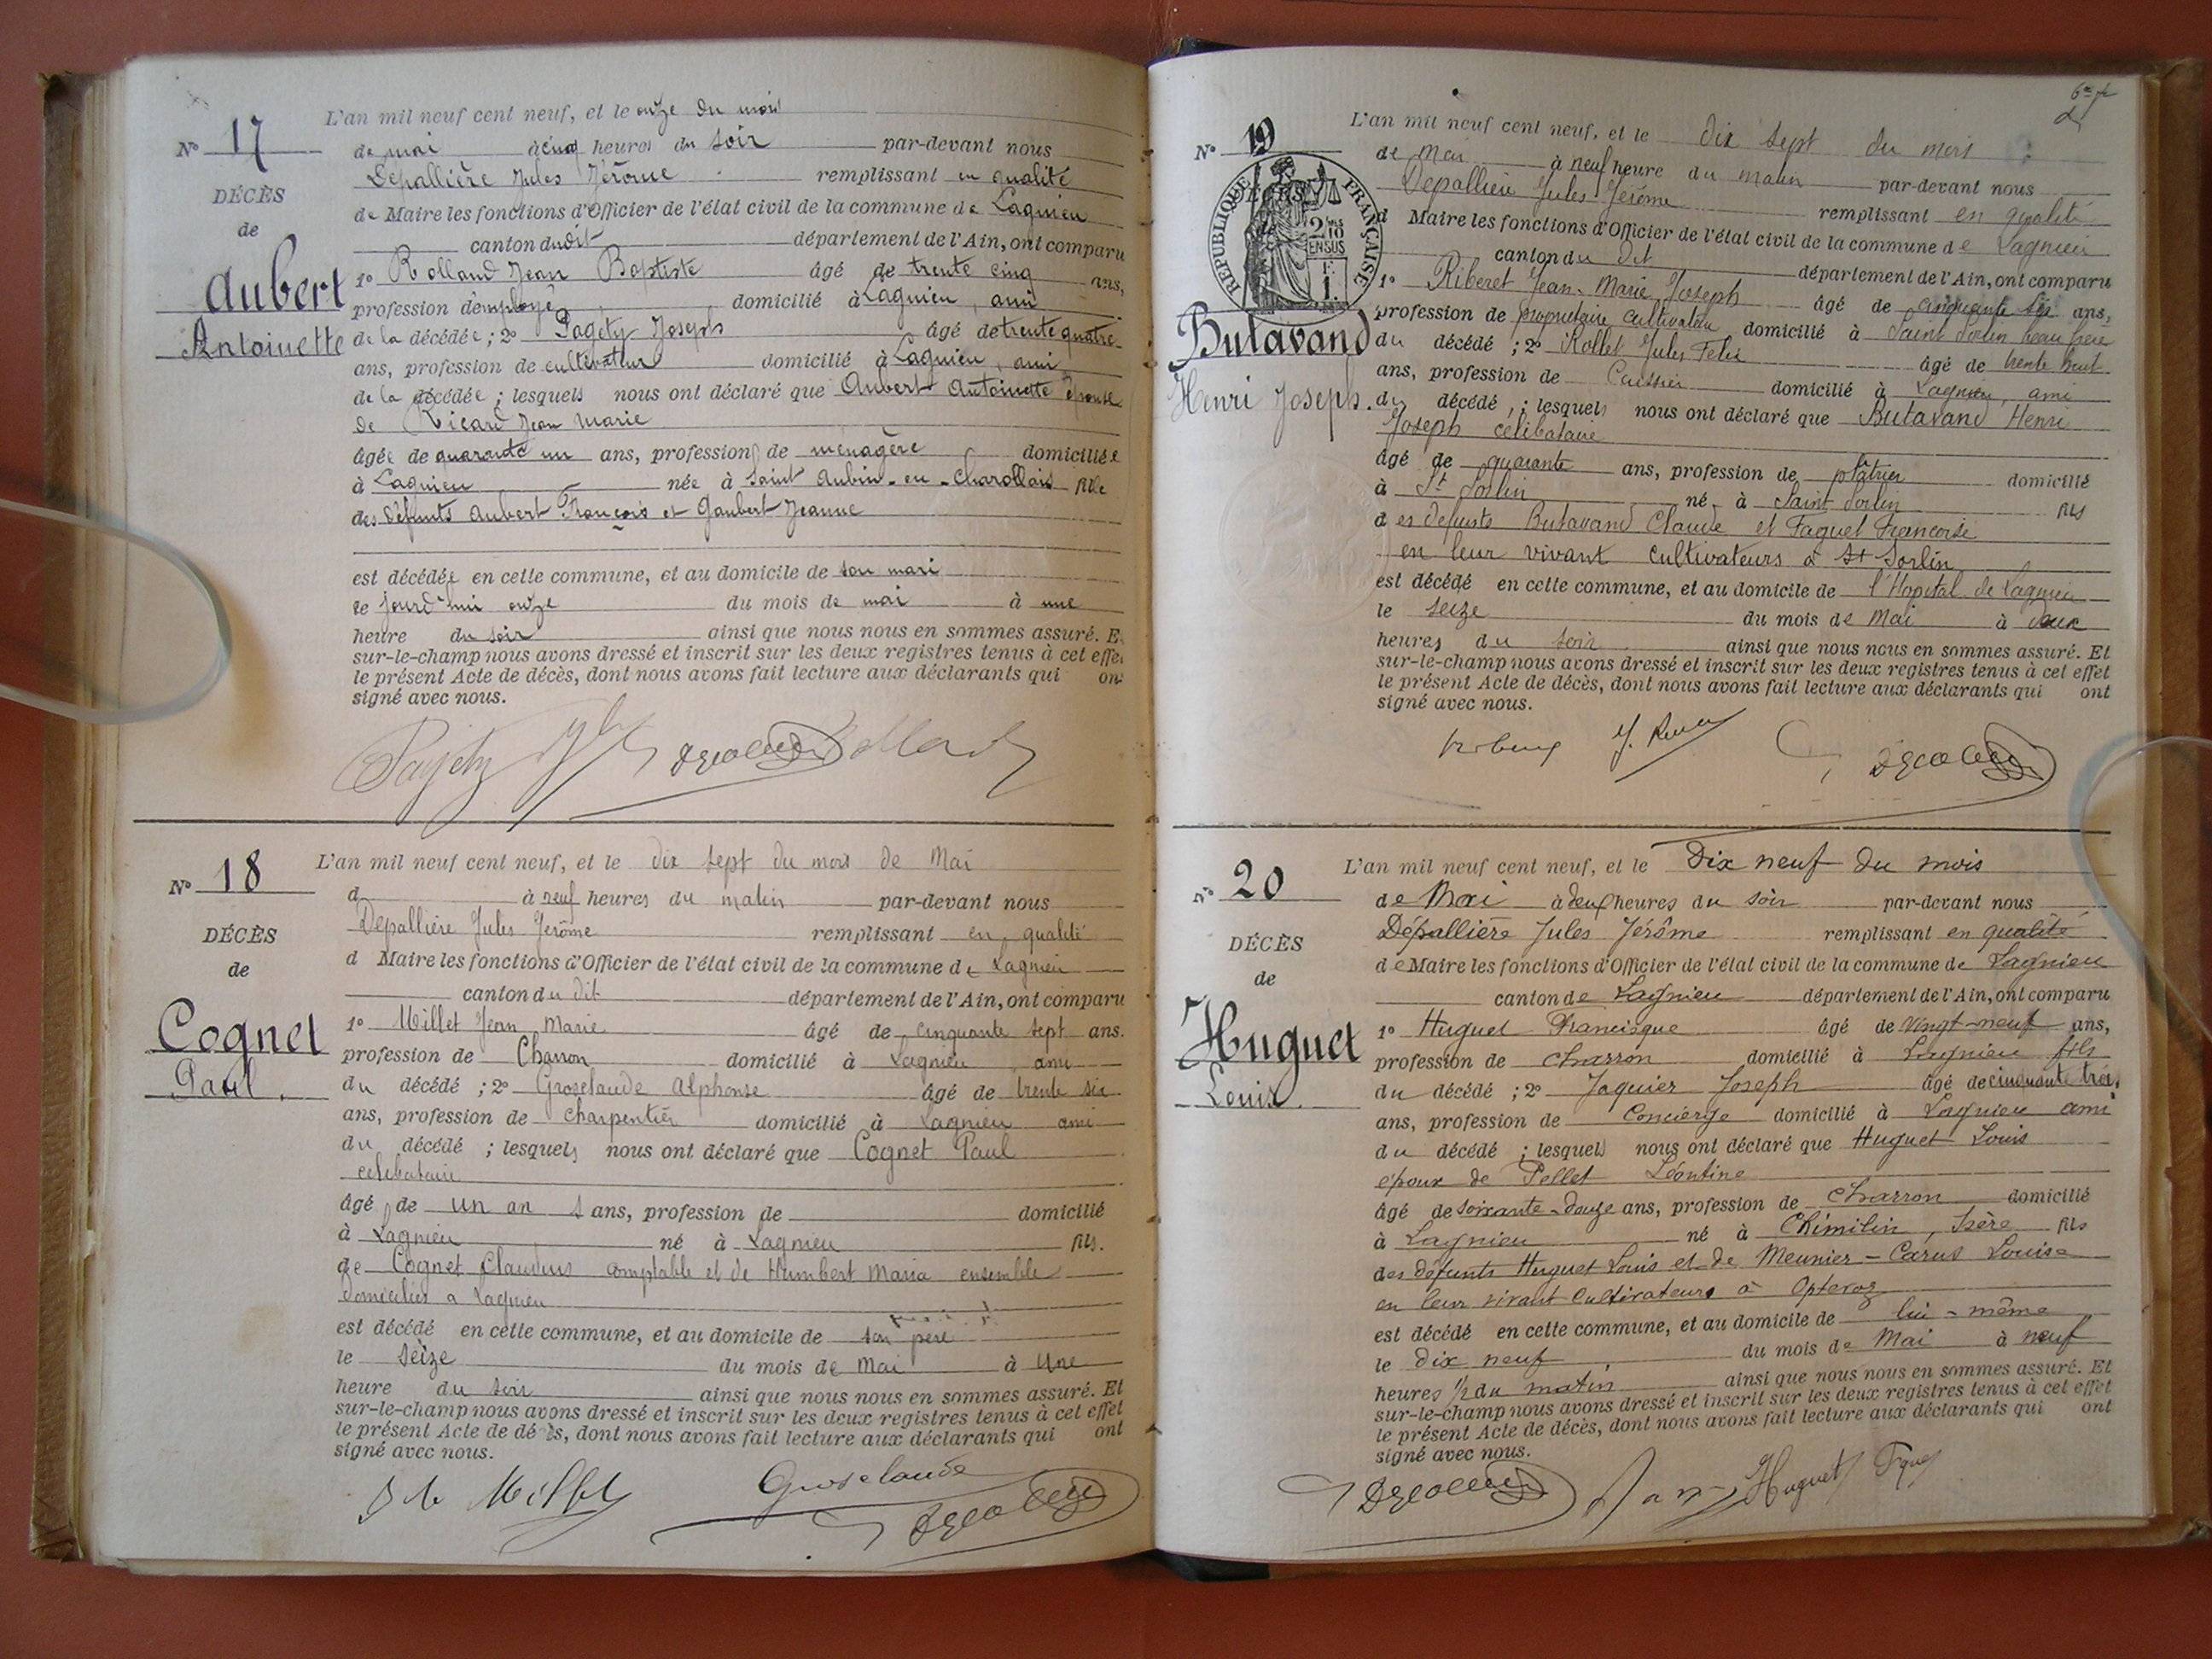 L'an mil neuf cent neuf, et le onze du mois
N° 17
de mai à cinq heures du soir par-devant nous
DÉCÈS
Depallière Jules Jérôme remplissant en qualité
de
de Maire les fonctions d'Officier de l'état civil de la commune de Lagnieu
canton dudit département de l'Ain, ont comparu
Aubert
1° Rolland Jean Baptiste âgé de trente cinq ans,
profession d'employé domicilié à Lagnieu, ami
Antoinette
de la décédée; 2° Pagéty Joseph âgé de trente quatre
ans, profession de cultivateur domicilié à Lagnieu, ami
de la décédée; lesquels nous ont déclaré que Aubert Antoinette épouse
de Ricard Jean Marie
âgée de quarante un ans, profession de ménagère domiciliée
à Lagnieu née à Saint Aubin-en-Charollais fille
des défunts Aubert François et Gaubert Jeanne
est décédée en cette commune, et au domicile de son mari
ce jourd'hui onze du mois de mai à une
heure du soir ainsi que nous nous en sommes assuré. E
sur-le-champ nous avons dressé et inscrit sur les deux registres tenus à cet effe
le présent Acte de décès, dont nous avons fait lecture aux déclarants qui on
signé avec nous.
L'an mil neuf cent neuf, et le dix sept du mois de Mai
N° 18
d à neuf heures du matin par-devant nous
DÉCÈS
Depallière Jules Jérôme remplissant en qualité
de
d Maire les fonctions d'Officier de l'état civil de la commune de Lagnieu
canton du dit département de l'Ain, ont comparu
Cognet
1° Millet Jean Marie âgé de cinquante sept ans.
profession de Charron domicilié à Lagnieu ami
Paul.
du décédé; 2° Groselaude Alphonse âgé de trente six
ans, profession de charpentier domicilié à Lagnieu ami
du décédé; lesquels nous ont déclaré que Cognet Paul
célibataire
âgé de un an s ans, profession de domicilié
à Lagnieu né à Lagnieu fils.
de Cognet Claudius comptable et de Humbert Maria ensemble
domiciliés a Lagnieu
est décédé en cette commune, et au domicile de son père
le seize du mois de Mai à Une
heure du soir ainsi que nous nous en sommes assuré. Et
sur-le-champ nous avons dressé et inscrit sur les deux registres tenus à cet effet
le présent Acte de décès, dont nous avons fait lecture aux déclarants qui ont
signé avec nous.
Millet Groselaude
L'an mil neuf cent neuf, et le dix sept du mois
N° 19
de Mai à neuf heure du matin par-devant nous
RÉPUBLIQUE FRANÇAISE
2/10 EN SUS
1 F.
Depallière Jules Jérôme remplissant en qualité
d Maire les fonctions d'Officier de l'état civil de la commune de Lagnieu
canton du dit département de l'Ain, ont comparu
1° Riberet Jean-Marie Joseph âgé de cinquante six ans,
profession de propriétaire cultivateur domicilié à Saint Sorlin beau frère
Butavand
du décédé; 2° Rollet Jules Felix âgé de trente huit
ans, profession de Caissier domicilié à Lagnieu, ami
Henri Joseph.
du décédé,; lesquels nous ont déclaré que Butavand Henri
Joseph célibataire
âgé de quarante ans, profession de plâtrier domicilié
à St Sorlin né à Saint Sorlin fils
des défunts Butavand Claude et Faquet Francoise
en leur vivant cultivateurs à St Sorlin
est décédé en cette commune, et au domicile de l'Hopital de Lagnieu
le seize du mois de Mai à deux
heures du soir ainsi que nous nous en sommes assuré. Et
sur-le-champ nous avons dressé et inscrit sur les deux registres tenus à cet effet
le présent Acte de décès, dont nous avons fait lecture aux déclarants qui ont
signé avec nous.
L'an mil neuf cent neuf, et le Dix neuf du mois
N° 20
de Mai à deux heures du soir par-devant nous
DÉCÈS
Dépallière Jules Jérôme remplissant en qualité
de
de Maire les fonctions d'Officier de l'état civil de la commune de Lagnieu
canton de Lagnieu département de l'Ain, ont comparu
Huguet
1° Huguet Francisque âgé de Vingt-neuf ans,
profession de charron domicilié à Lagnieu fils
Louis.
du décédé; 2° Jaquier Joseph âgé de cinquante trois
ans, profession de Concierge domicilié à Lagnieu ami
du décédé; lesquels nous ont déclaré que Huguet Louis
époux de Pellet Léontine
âgé de soixante-douze ans, profession de charron domicilié
à Lagnieu né à Chimilin, Isère fils
des défunts Huguet Louis et de Meunier-Carus Louise
en leur vivant Cultivateurs à Optevoz
est décédé en cette commune, et au domicile de lui-même
le dix neuf du mois de Mai à neuf
heures 1/2 du matin ainsi que nous nous en sommes assuré. Et
sur-le-champ nous avons dressé et inscrit sur les deux registres tenus à cet effet
le présent Acte de décès, dont nous avons fait lecture aux déclarants qui ont
signé avec nous.
Huguet